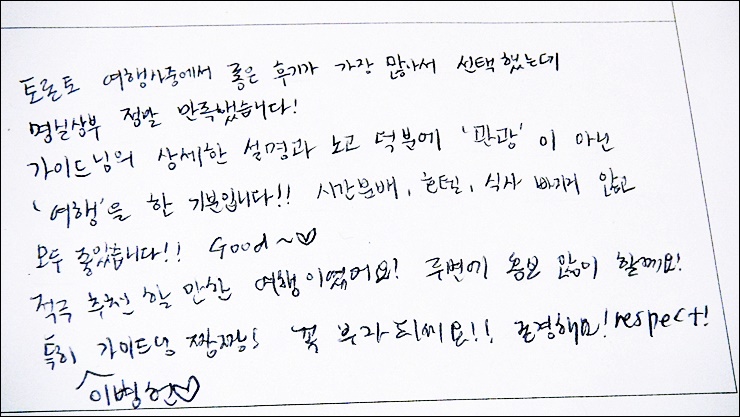 토론토 여행사중에서 좋은 후기가 가장 많아서 선택했는데
명실상부 정말 만족했습니다!
가이드님의 상세한 설명과 노고 덕분에 '관광'이 아닌
'여행'을 한 기분입니다!! 시간분배, 호텔, 식사 빠지지 않고
모두 좋았습니다!! Good~♡
적극 추천 할 만한 여행이였어요! 주변에 홍보 많이 할께요!
특히 가이드님 짱짱! 꼭 부자되세요!! 존경해요! respect!
이병헌♡